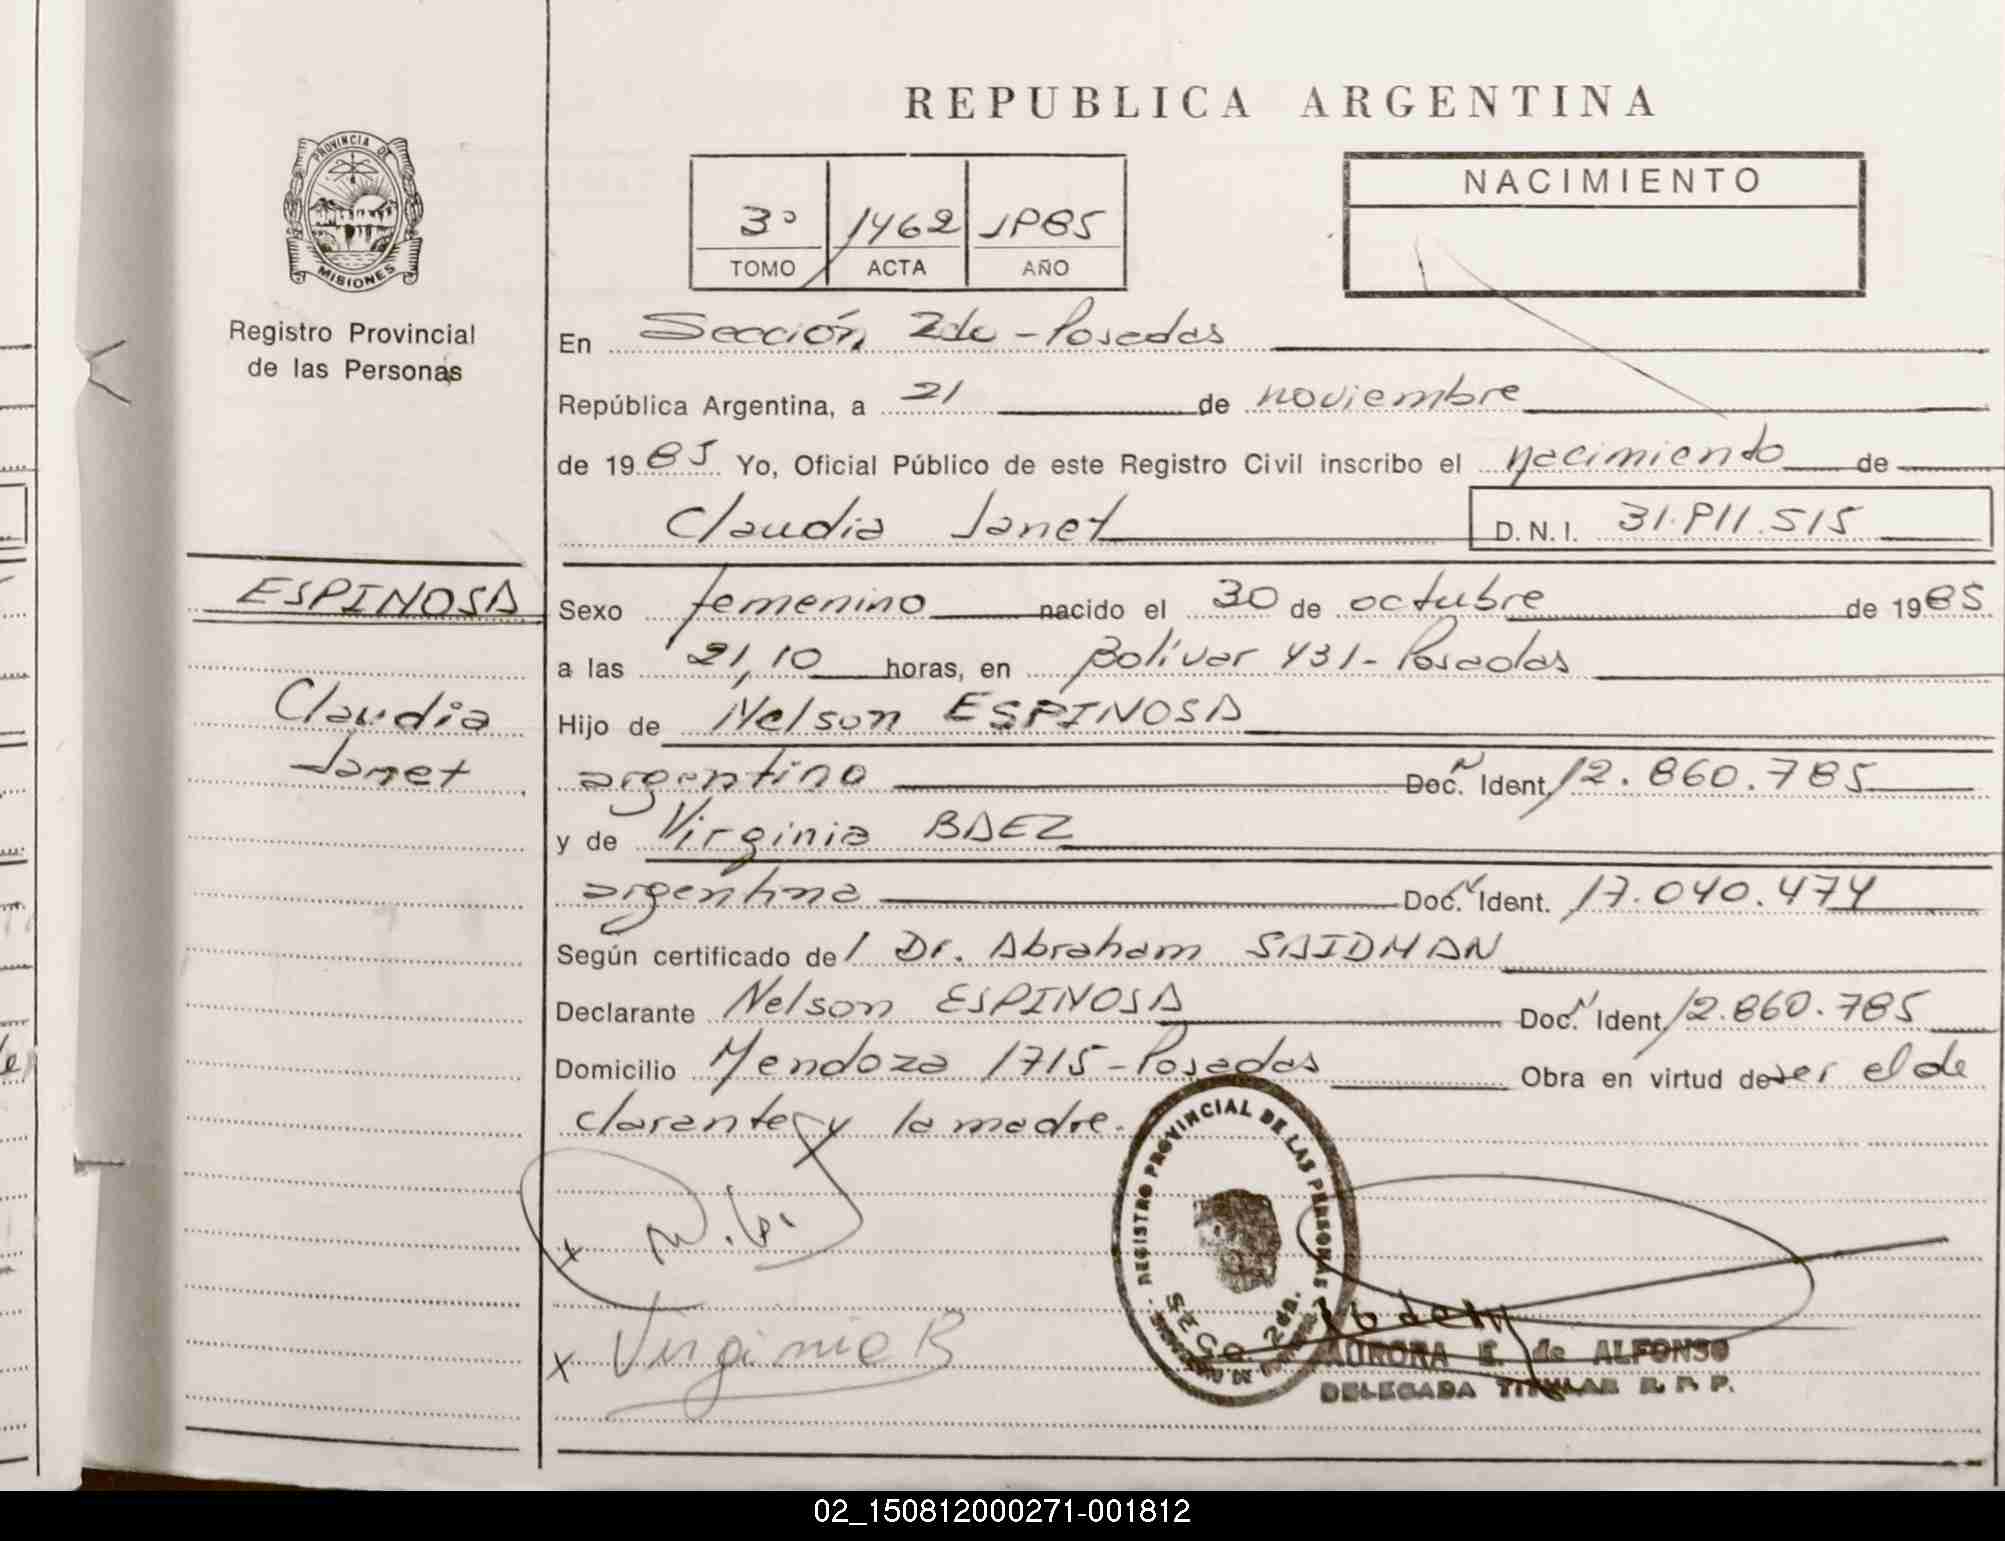 REPUBLICA ARGENTINA
PROVINCIA DE
MISIONES
Registro Provincial
de las Personas
3º 1462 1985
TOMO ACTA AÑO
NACIMIENTO
En Sección 2da - Posadas
República Argentina, a 21 de noviembre
de 1985 Yo, Oficial Público de este Registro Civil inscribo el nacimiento de
Claudia Janet D.N.I. 31.911.515
ESPINOSA
Claudia
Janet
Sexo femenino nacido el 30 de octubre de 1985
a las 21,10 horas, en Bolívar 431 - Posadas
Hijo de Nelson ESPINOSA
argentino Doc. Ident. 12.860.785
y de Virginia BAEZ
argentina Doc. Ident. 17.040.474
Según certificado del Dr. Abraham SAIDMAN
Declarante Nelson ESPINOSA Doc. Ident. 12.860.785
Domicilio Mendoza 1715 - Posadas Obra en virtud de ser el de
clarante y la madre.
REGISTRO PROVINCIAL DE LAS PERSONAS
SECC. 2da.
x
x Virginia B
AURORA E. de ALFONSO
DELEGADA TITULAR R. P. P.
02_150812000271-001812